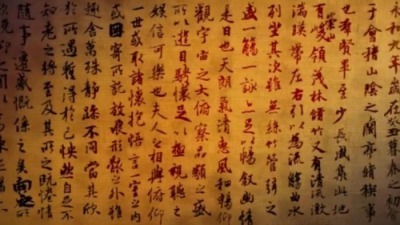 永和九年歲在癸丑暮春之初
于會稽山陰之蘭亭脩禊事
也群賢畢至少長咸集此地
有崇山峻領茂林脩竹又有清流激
湍暎帶左右引以為流觴曲水
列坐其次雖無絲竹管弦之
盛一觴一詠亦足以暢敘幽情
是日也天朗氣清惠風和暢仰
觀宇宙之大俯察品類之盛
所以遊目騁懷足以極視聽之
娛信可樂也夫人之相與俯仰
一世或取諸懷抱悟言一室之內
或因寄所託放浪形骸之外雖
趣舍萬殊靜躁不同當其欣
於所遇蹔得於己快然自足不
知老之將至及其所之既惓情
隨事遷感慨係之矣向之
俛仰之間以為陳